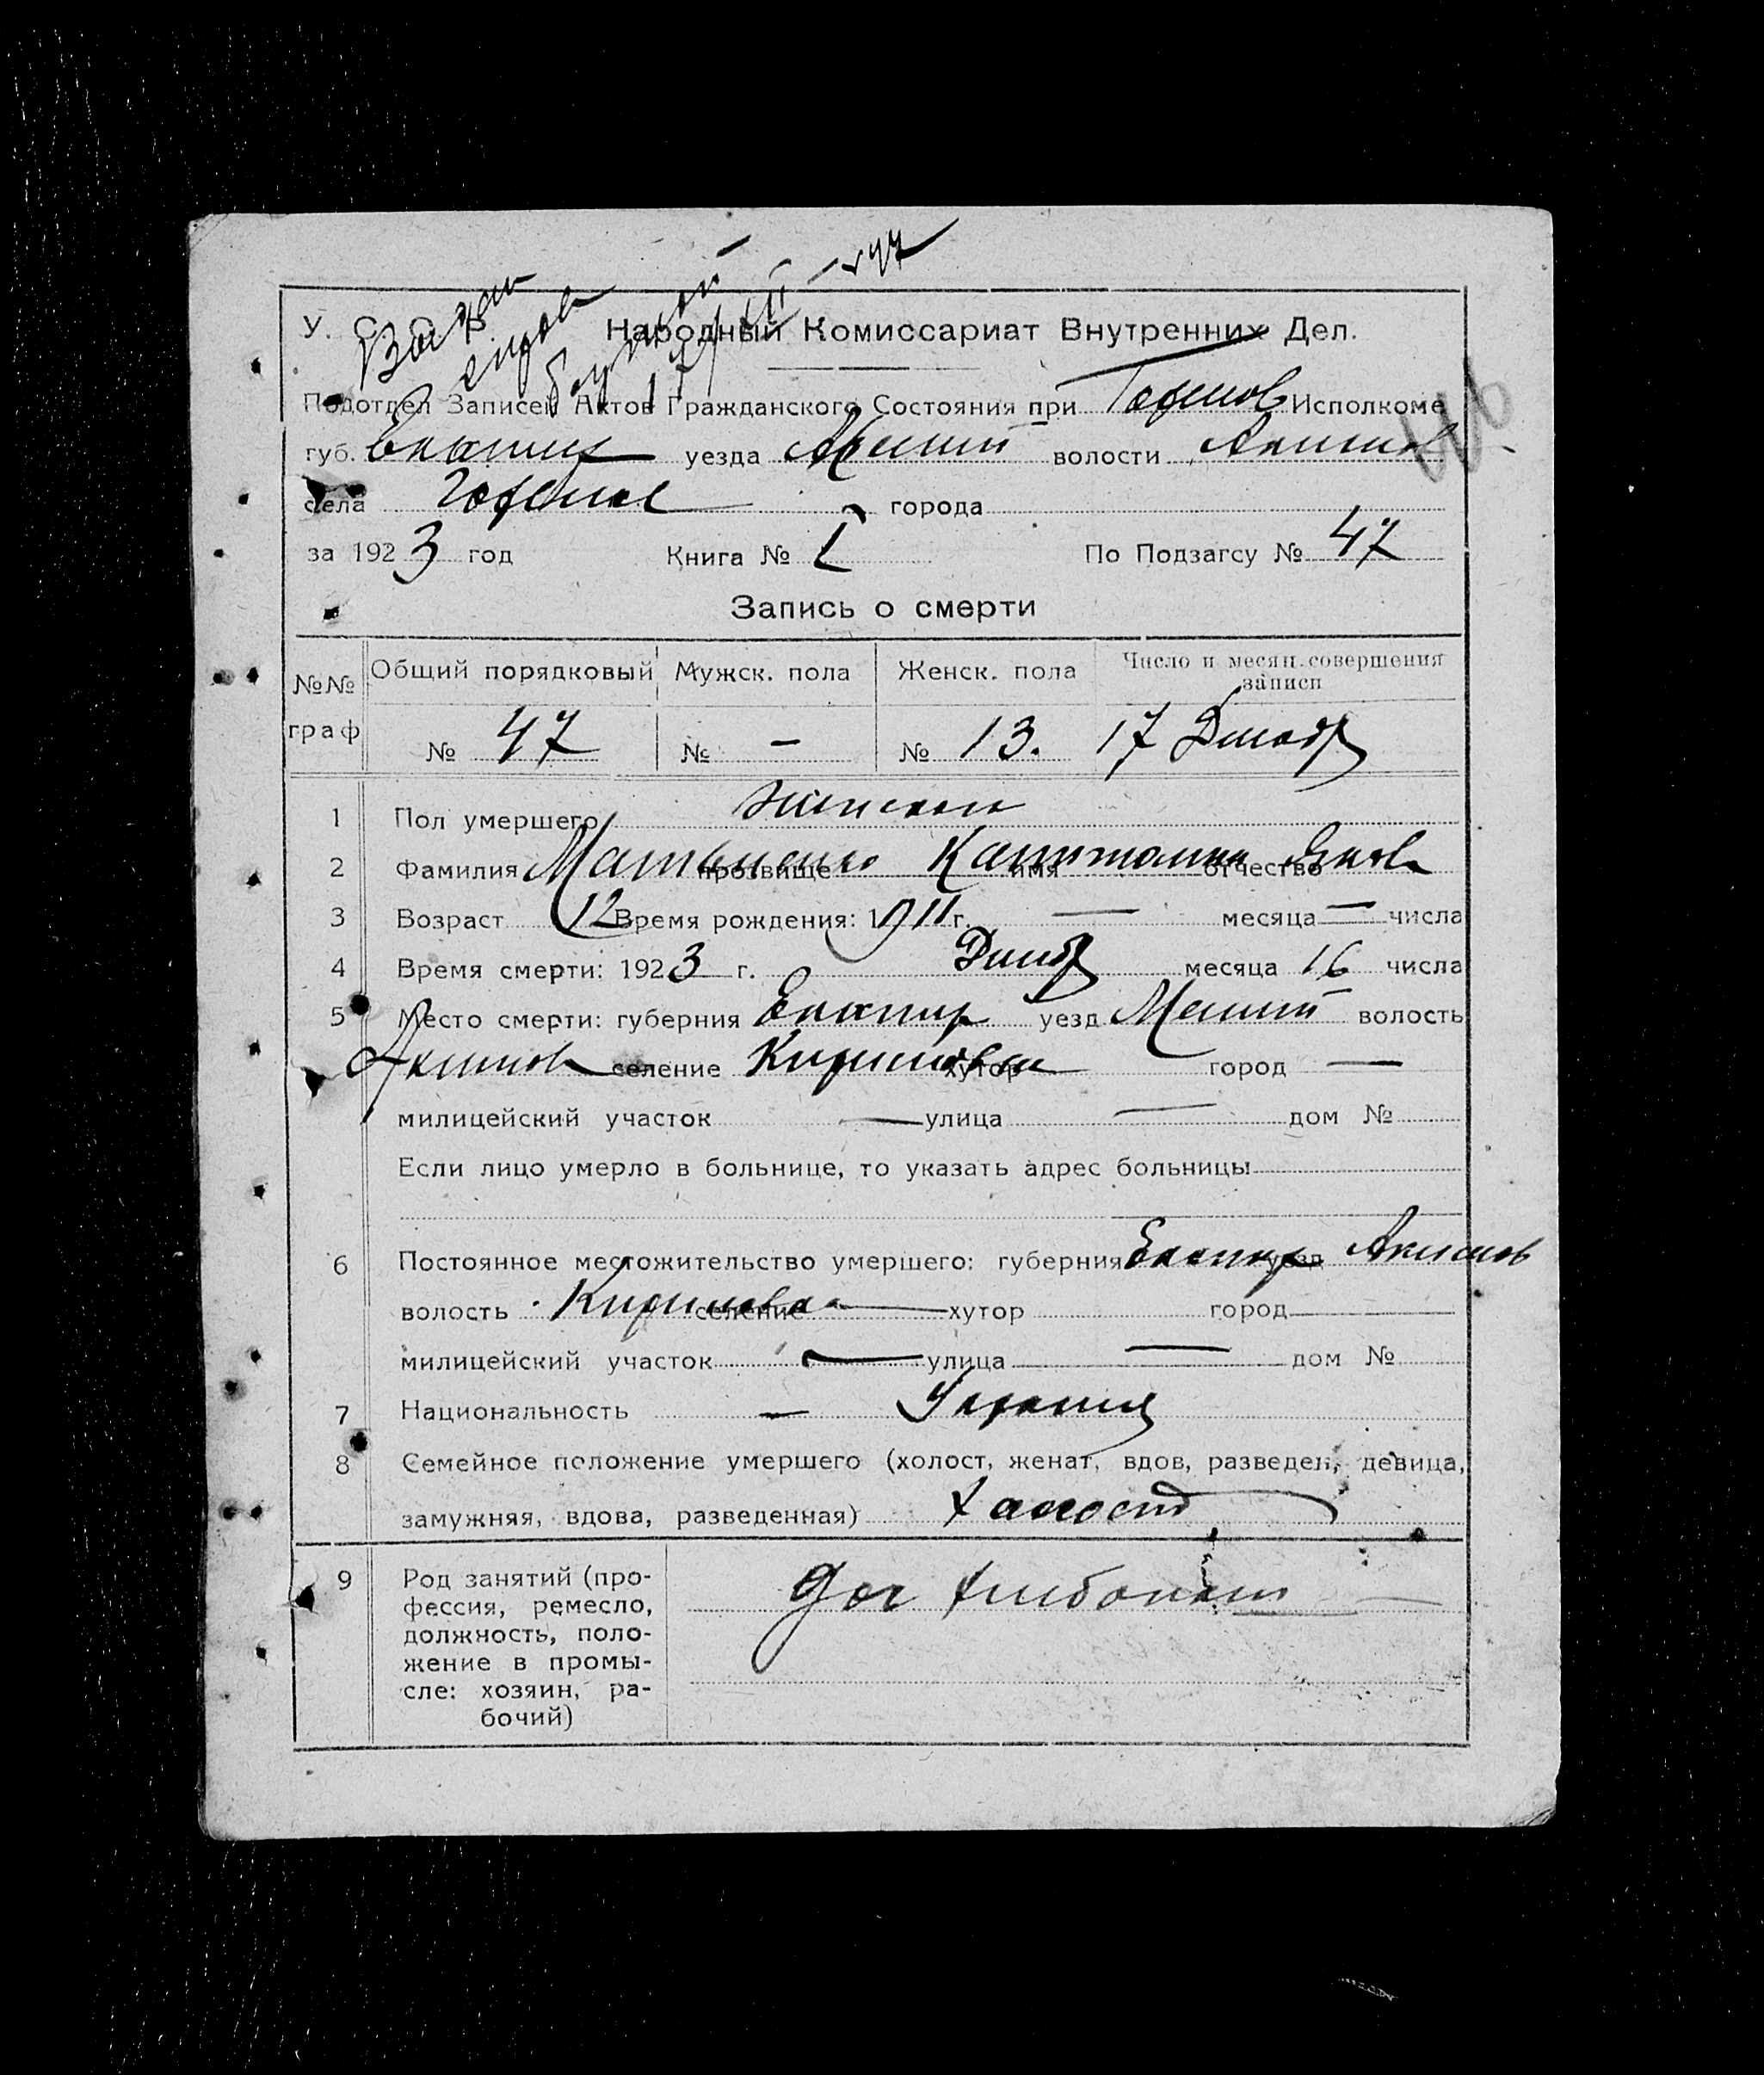 У. С. С. Р. Народный Комиссариат Внутренних Дел.
Подотдел Записей Актов Гражданского Состояния при Исполкоме
губ. уезда волости Акимов
села города
за 1923 год Книга № По Подзагсу № 47
Запись о смерти
№№ граф Общий порядковый Мужск. пола Женск. пола Число и месяц совершения записи
№ 47 № — № 13. 17 Декабр
1 Пол умершего
2 Фамилия Матвиенко прозвище Капитолина имя отчество Яковл
3 Возраст 12 Время рождения: 1911 г. — месяца — числа
4 Время смерти: 1923 г. Декабр месяца 16 числа
5 Место смерти: губерния Екатер уезд Мелит волость
Акимов селение Кириловка хутор город —
милицейский участок — улица — дом №
Если лицо умерло в больнице, то указать адрес больницы
6 Постоянное местожительство умершего: губерния Екатер уезд Акимов
волость Кириловка селение — хутор город —
милицейский участок — улица — дом №
7 Национальность —
8 Семейное положение умершего (холост, женат, вдов, разведен, девица,
замужняя, вдова, разведенная) холост
9 Род занятий (про-
фессия, ремесло,
должность, поло-
жение в промы-
сле: хозяин, ра-
бочий)